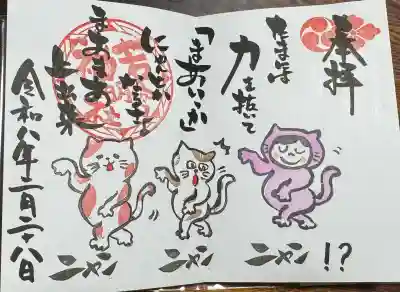 奉拝
たまには
力を抜いて
「まあいっか」
にゃんとか
なるさ
まあまあ
上出来
令和八年一月二十八日
ニャン
ニャン
ニャン!?